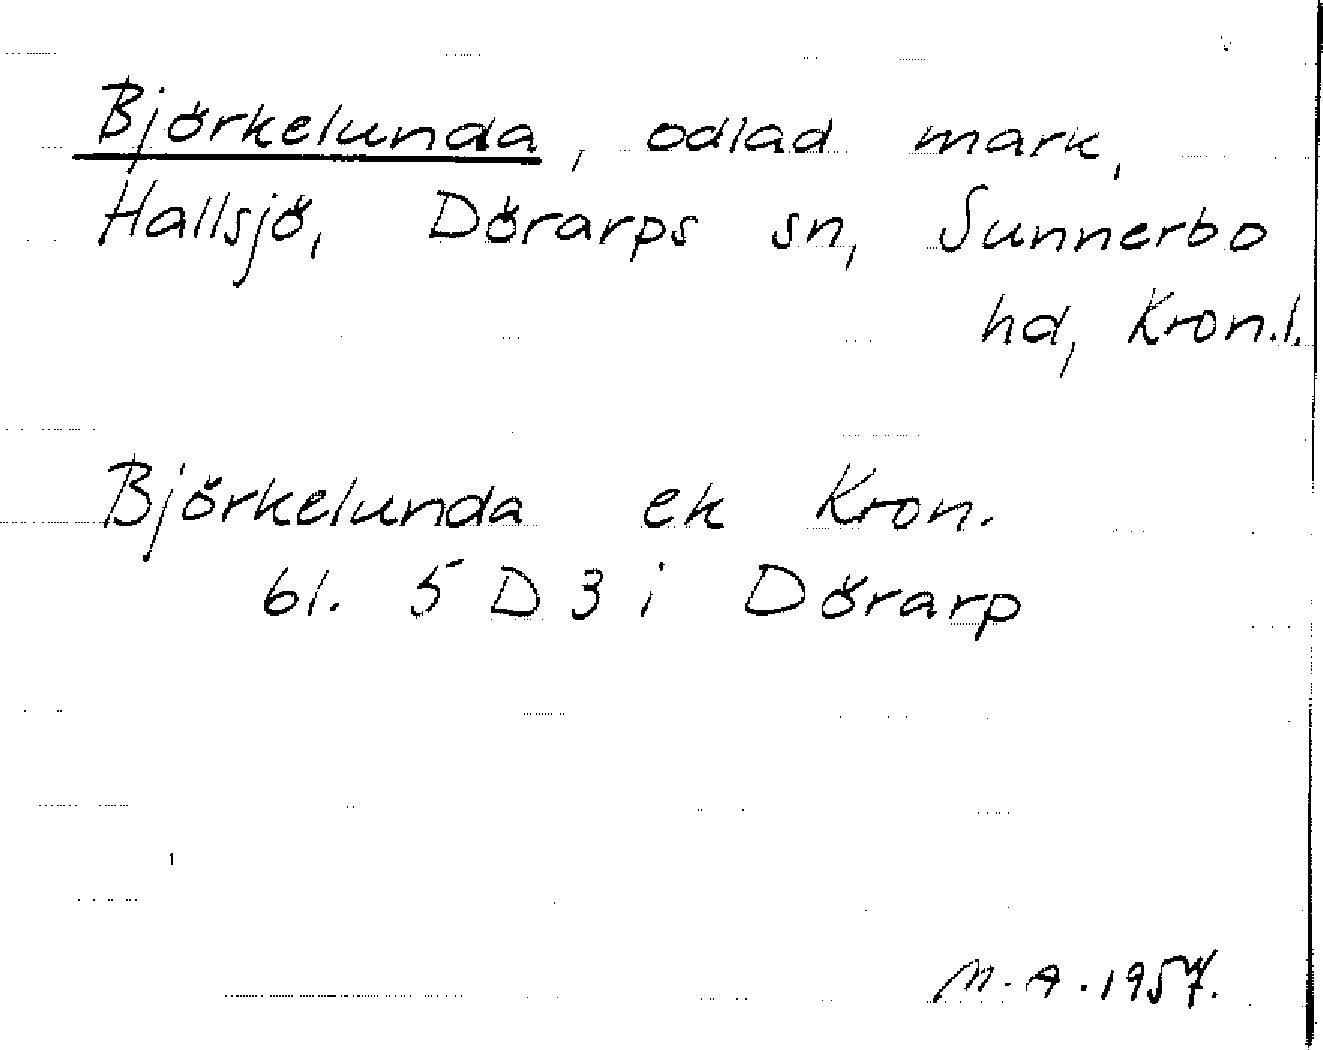 Björkelunda, odlad mark,
Hallsjö, Dörarps sn, Sunnerbo
hd, Kron.l.
Björkelunda ek Kron.
bl. 5 D 3 i Dörarp
M.A. 1957.